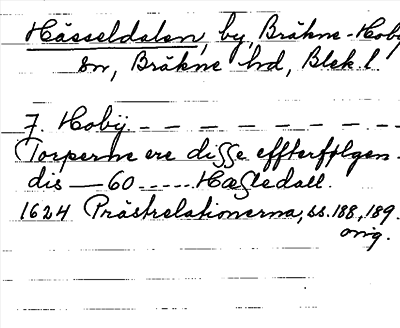 Hässeldalen, by, Bräkne-Hoby
sn, Bräkne hd, Blek. l.
J. Hobÿ - - - - - - - -
Torperne ere diſse effterfølgen-
dis — 60 ----- Hæſledall.
1624 Prästrelationerna, ss. 188, 189.
orig.